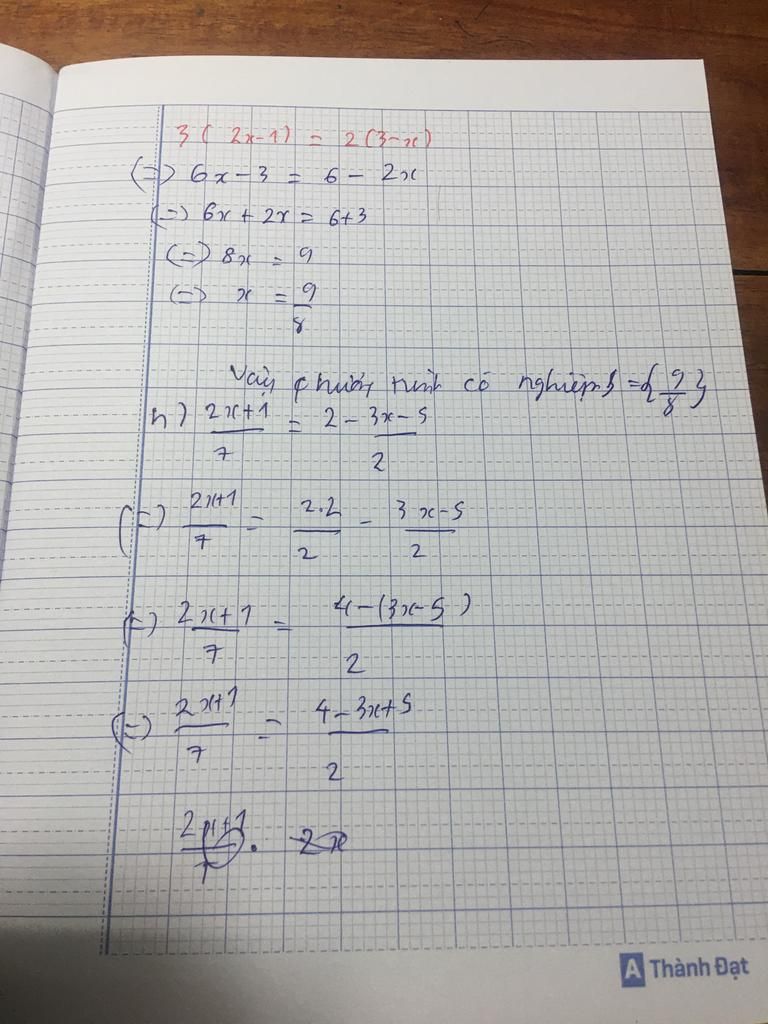 3( 2x-1) = 2(3-x)
(=) 6x-3 = 6 - 2x
(=) 6x + 2x = 6+3
(=) 8x = 9
(=) x = 9/8
Vậy phương trình có nghiệm S ={9/8}
h) (2x+1)/7 = 2 - (3x-5)/2
(=) (2x+1)/7 = (2.2)/2 - (3x-5)/2
(=) (2x+1)/7 = (4-(3x-5))/2
(=) (2x+1)/7 = (4-3x+5)/2
A Thành Đạt